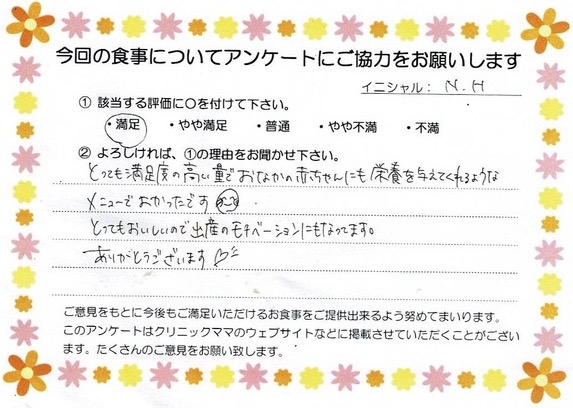 今回の食事についてアンケートにご協力をお願いします
イニシャル： N.H
① 該当する評価に○を付けて下さい。
・満足 ・やや満足 ・普通 ・やや不満 ・不満
② よろしければ、①の理由をお聞かせ下さい。
とっても満足度の高い量でおなかの赤ちゃんにも栄養を与えてくれるような
メニューでよかったです
とってもおいしいので出産のモチベーションにもなってます。
ありがとうございます♡
ご意見をもとに今後もご満足いただけるお食事をご提供出来るよう努めてまいります。
このアンケートはクリニックママのウェブサイトなどに掲載させていただくことがござい
ます。たくさんのご意見をお願い致します。